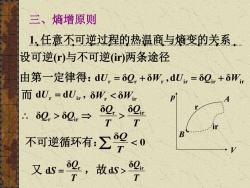 三、熵增原则
1、任意不可逆过程的热温商与熵变的关系
设可逆(r)与不可逆(ir)两条途径
由第一定律得: dUᵣ = δQᵣ + δWᵣ, dUᵢᵣ = δQᵢᵣ + δWᵢᵣ
而 dUᵣ = dUᵢᵣ, δWᵣ < δWᵢᵣ
∴ δQᵣ > δQᵢᵣ ⇒ δQᵣ/T > δQᵢᵣ/T
不可逆循环有: ∑ δQ/T < 0
又 dS = δQᵣ/T, 故 dS > δQᵢᵣ/T
p
A
r
ir
B
V